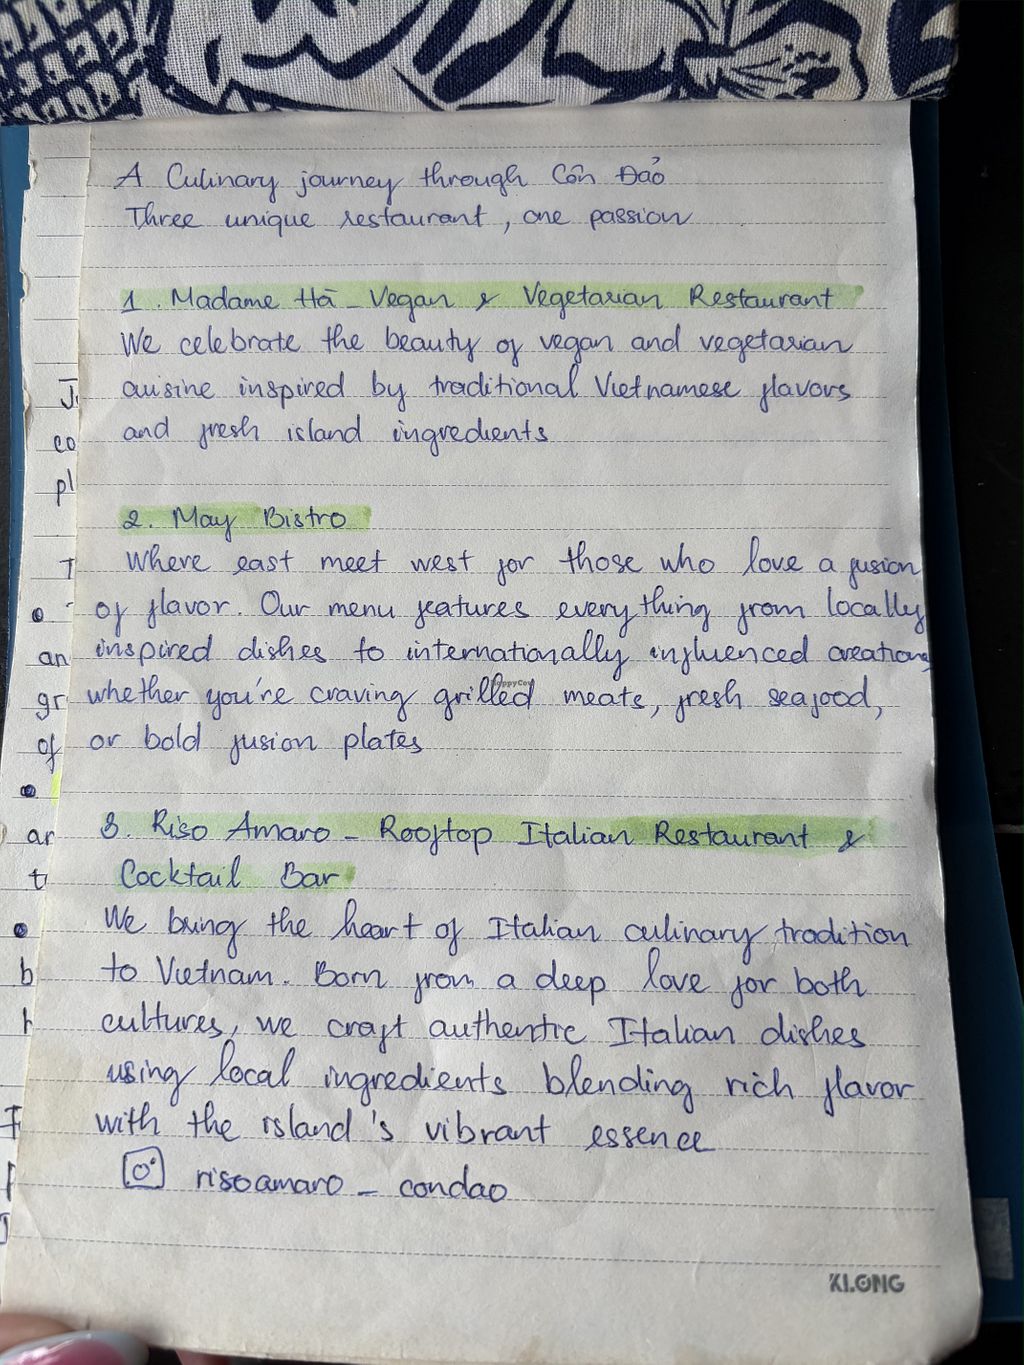 A Culinary journey through Côn Đảo
Three unique restaurant, one passion
1. Madame Hà - Vegan & Vegetarian Restaurant
We celebrate the beauty of vegan and vegetarian
cuisine inspired by traditional Vietnamese flavors
and fresh island ingredients
2. May Bistro
Where east meet west for those who love a fusion
of flavor. Our menu features everything from locally
inspired dishes to internationally influenced creations
whether you're craving grilled meats, fresh seafood,
or bold fusion plates
3. Riso Amaro - Rooftop Italian Restaurant &
Cocktail Bar
We bring the heart of Italian culinary tradition
to Vietnam. Born from a deep love for both
cultures, we craft authentic Italian dishes
using local ingredients blending rich flavor
with the island's vibrant essence
risoamaro - condao
KLONG
HappyCow